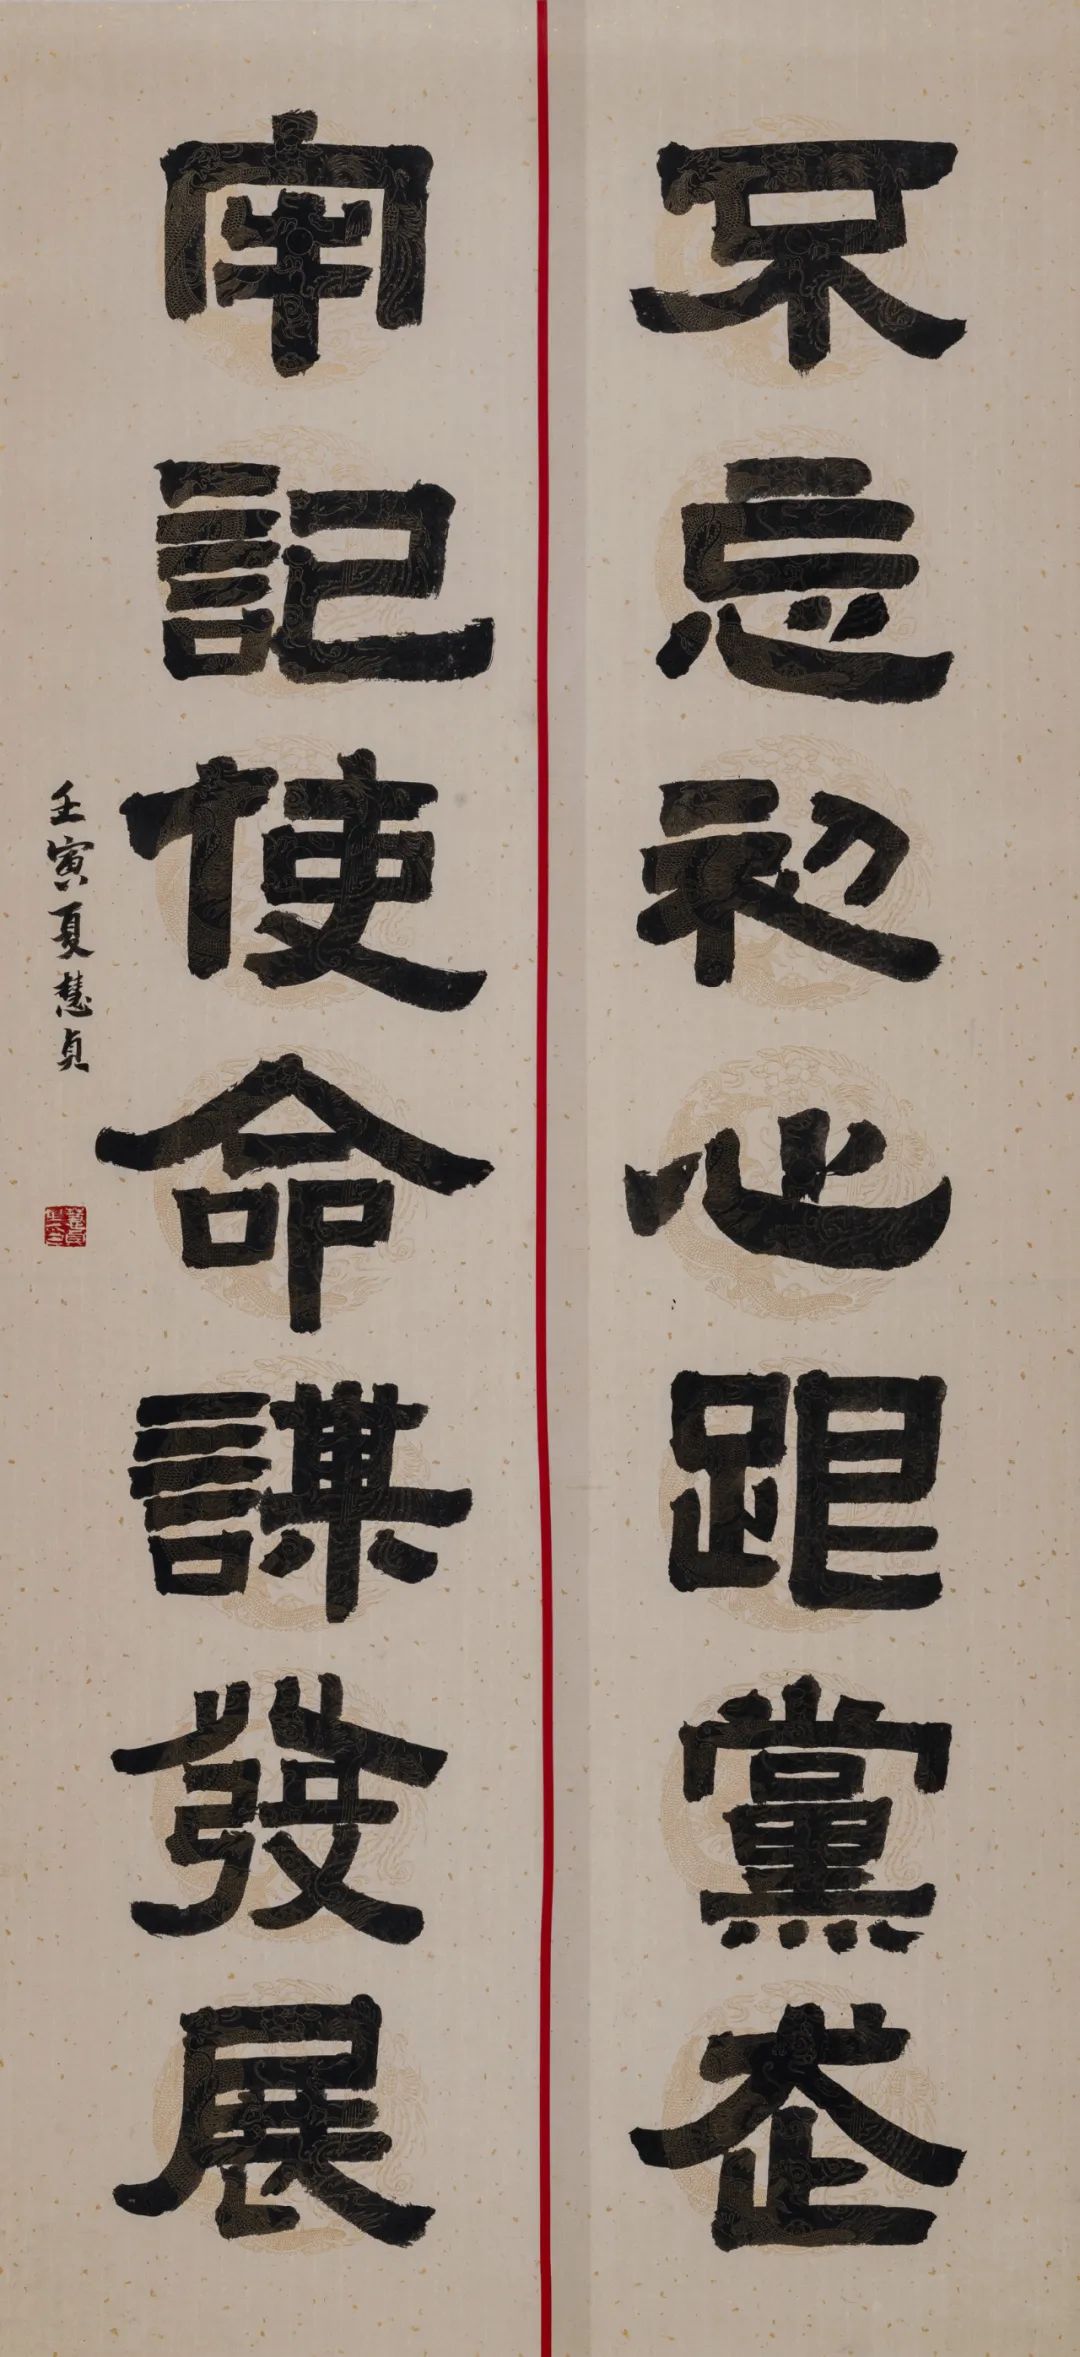 不忘初心跟黨走
牢記使命謀發展
壬寅夏慧貞